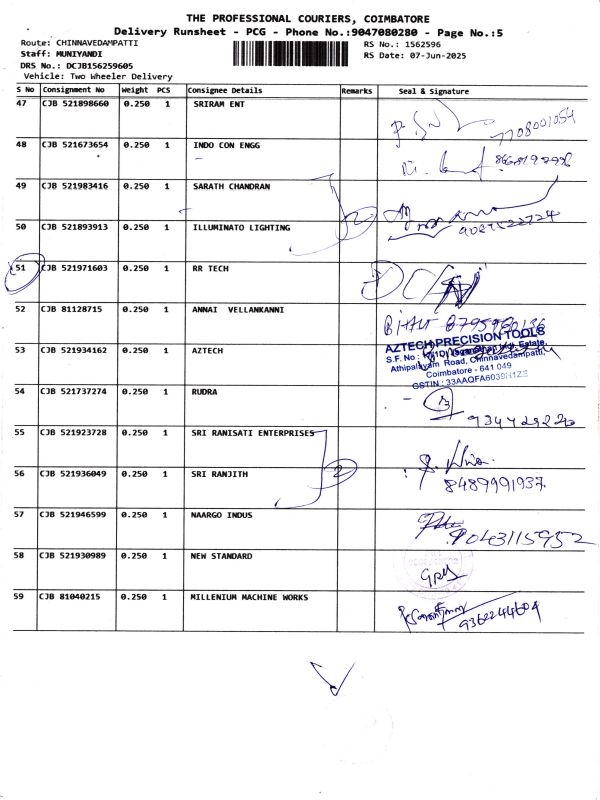 THE PROFESSIONAL COURIERS, COIMBATORE
Delivery Runsheet - PCG - Phone No.:9047080280 - Page No.:5
Route: CHINNAVEDAMPATTI
RS No.: 1562596
Staff: MUNIYANDI
RS Date: 07-Jun-2025
DRS No.: DCJB156259605
Vehicle: Two Wheeler Delivery
S No Consignment No Weight PCS Consignee Details Remarks Seal & Signature
47 CJB 521898660 0.250 1 SRIRAM ENT
7708001054
48 CJB 521673654 0.250 1 INDO CON ENGG
49 CJB 521983416 0.250 1 SARATH CHANDRAN
2
50 CJB 521893913 0.250 1 ILLUMINATO LIGHTING
51 CJB 521971603 0.250 1 RR TECH
DC
52 CJB 81128715 0.250 1 ANNAI VELLANKANNI
53 CJB 521934162 0.250 1 AZTECH
AZTECH PRECISION TOOLS
Athipalayam Road, Chinnavedampatti,
Coimbatore - 641 049
54 CJB 521737274 0.250 1 RUDRA
55 CJB 521923728 0.250 1 SRI RANISATI ENTERPRISES
56 CJB 521936049 0.250 1 SRI RANJITH
2
8489991937
57 CJB 521946599 0.250 1 NAARGO INDUS
9043115952
58 CJB 521930989 0.250 1 NEW STANDARD
59 CJB 81040215 0.250 1 MILLENIUM MACHINE WORKS
9362244604